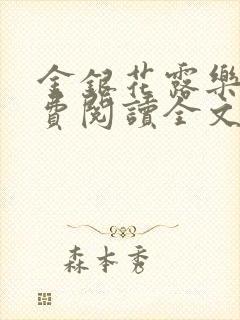 金銀花露樂
費閱讀全文
森本秀